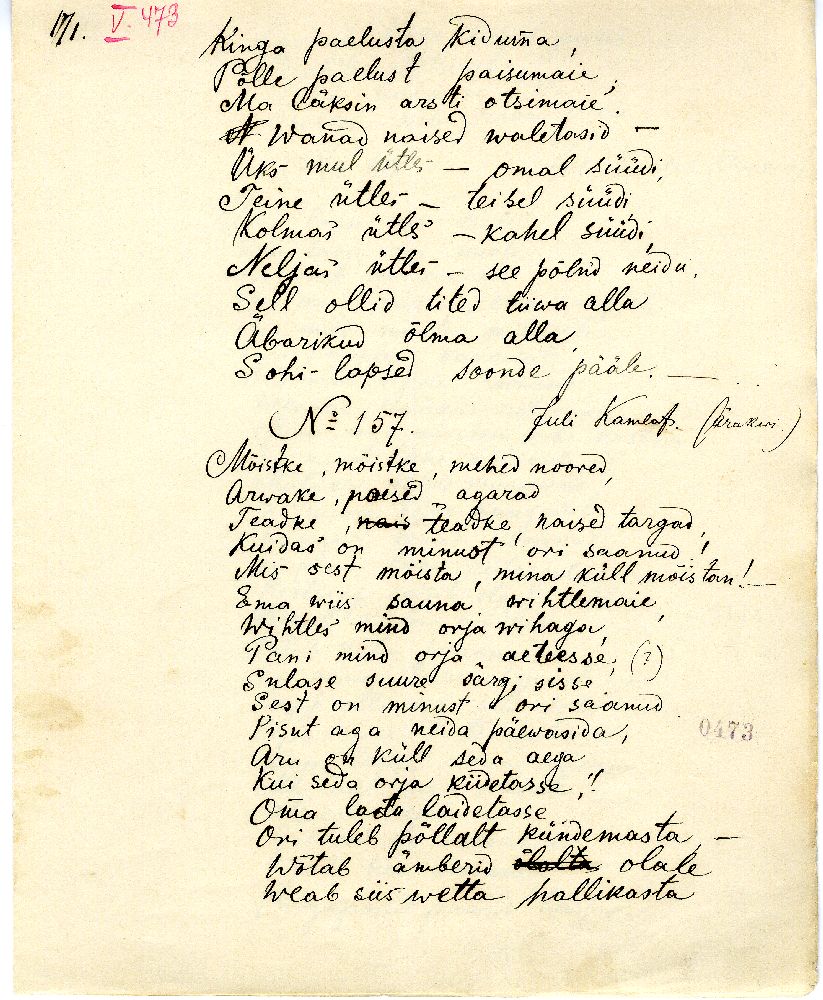 171. V. 473
Kinga paelusta kiduma,
Põlle paelust paisumaie,
Ma läksin arsti otsimaie.
Wanad naised waletasid —
Üks mul ütles — omal süüdi,
Teine ütles — teisel süüdi,
Kolmas ütles — kahel süüdi,
Neljas ütles — see põlnd neidu,
Sell ollid tited tiiwa alla
Äbarikud õlma alla,
Sohi-lapsed soonde pääle. —
No 157. Juli
Mõistke, mõistke, mehed noored,
Arwake, poised agarad
Teadke, nais teadke, naised targad,
Kuidas on minust ori saanud!
Mis sest mõista, mina küll mõistan! —
Ema wiis sauna wihtlemaie,
Wihtles mind orja wihaga,
Pani mind orja aeteesse, (?)
Sulase suure särgi sisse.
Sest on minust ori saanud
Pisut aga neida päewasida,
Aru on küll seda aega
Kui seda orja kiidetasse,!
Oma lasta laidetasse
Ori tuleb põllalt kündemasta, —
Wõtab ämberid õlalta olale
Weab siis wetta hallikasta
0473